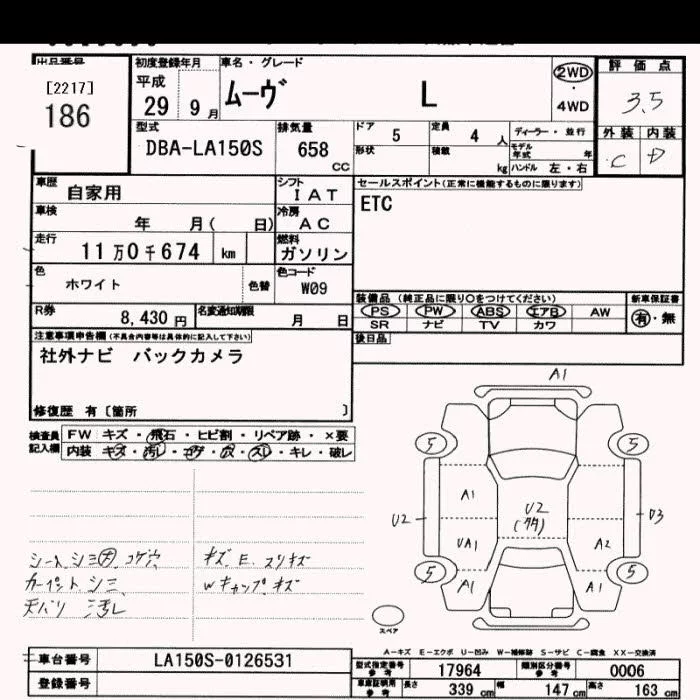 出品番号
[2217]
186
初度登録年月
平成
29 9月
車名・グレード
ムーヴ L
2WD
・
4WD
評価点
3.5
外装 内装
C D
型式
DBA-LA150S
排気量
658 cc
ドア 5
定員 4 人
ディーラー・並行
形状
積載 kg
モデル年式 年
ハンドル 左・右
車歴 自家用
シフト IAT
セールスポイント(正常に機能するものに限ります)
ETC
車検 年 月( 日)
冷房 AC
走行 11万0千674 km
燃料 ガソリン
色 ホワイト 色替
色コード W09
装備品 (純正品に限り○をつけてください)
新車保証書
PS PW ABS エアB AW
有・無
SR ナビ TV カワ
R券 8,430円
名変通知期限 月 日
後日品
注意事項申告欄(不具合内容等は具体的に記入して下さい)
社外ナビ バックカメラ
修復歴 有〔箇所 〕
検査員記入欄
FW キズ・飛石・ヒビ割・リペア跡・×要
内装 キズ・汚レ・コゲ・穴・スレ・キレ・破レ
A1
5 5
A1
U2 U2 D3
(多)
UA1 A2
5 5
A1 A1
スペア
シートシミ大 コゲ穴 キズ E. スリキズ
カーペットシミ Wキャップキズ
天バリ 汚レ
A−キズ E−エクボ U−凹み W−補修跡 S−サビ C−腐食 XX−交換済
車台番号 LA150S-0126531
登録番号
型式指定番号 参考 17964
類別区分番号 参考 0006
車庫証明用 参考 長さ 339 cm 幅 147 cm 高さ 163 cm